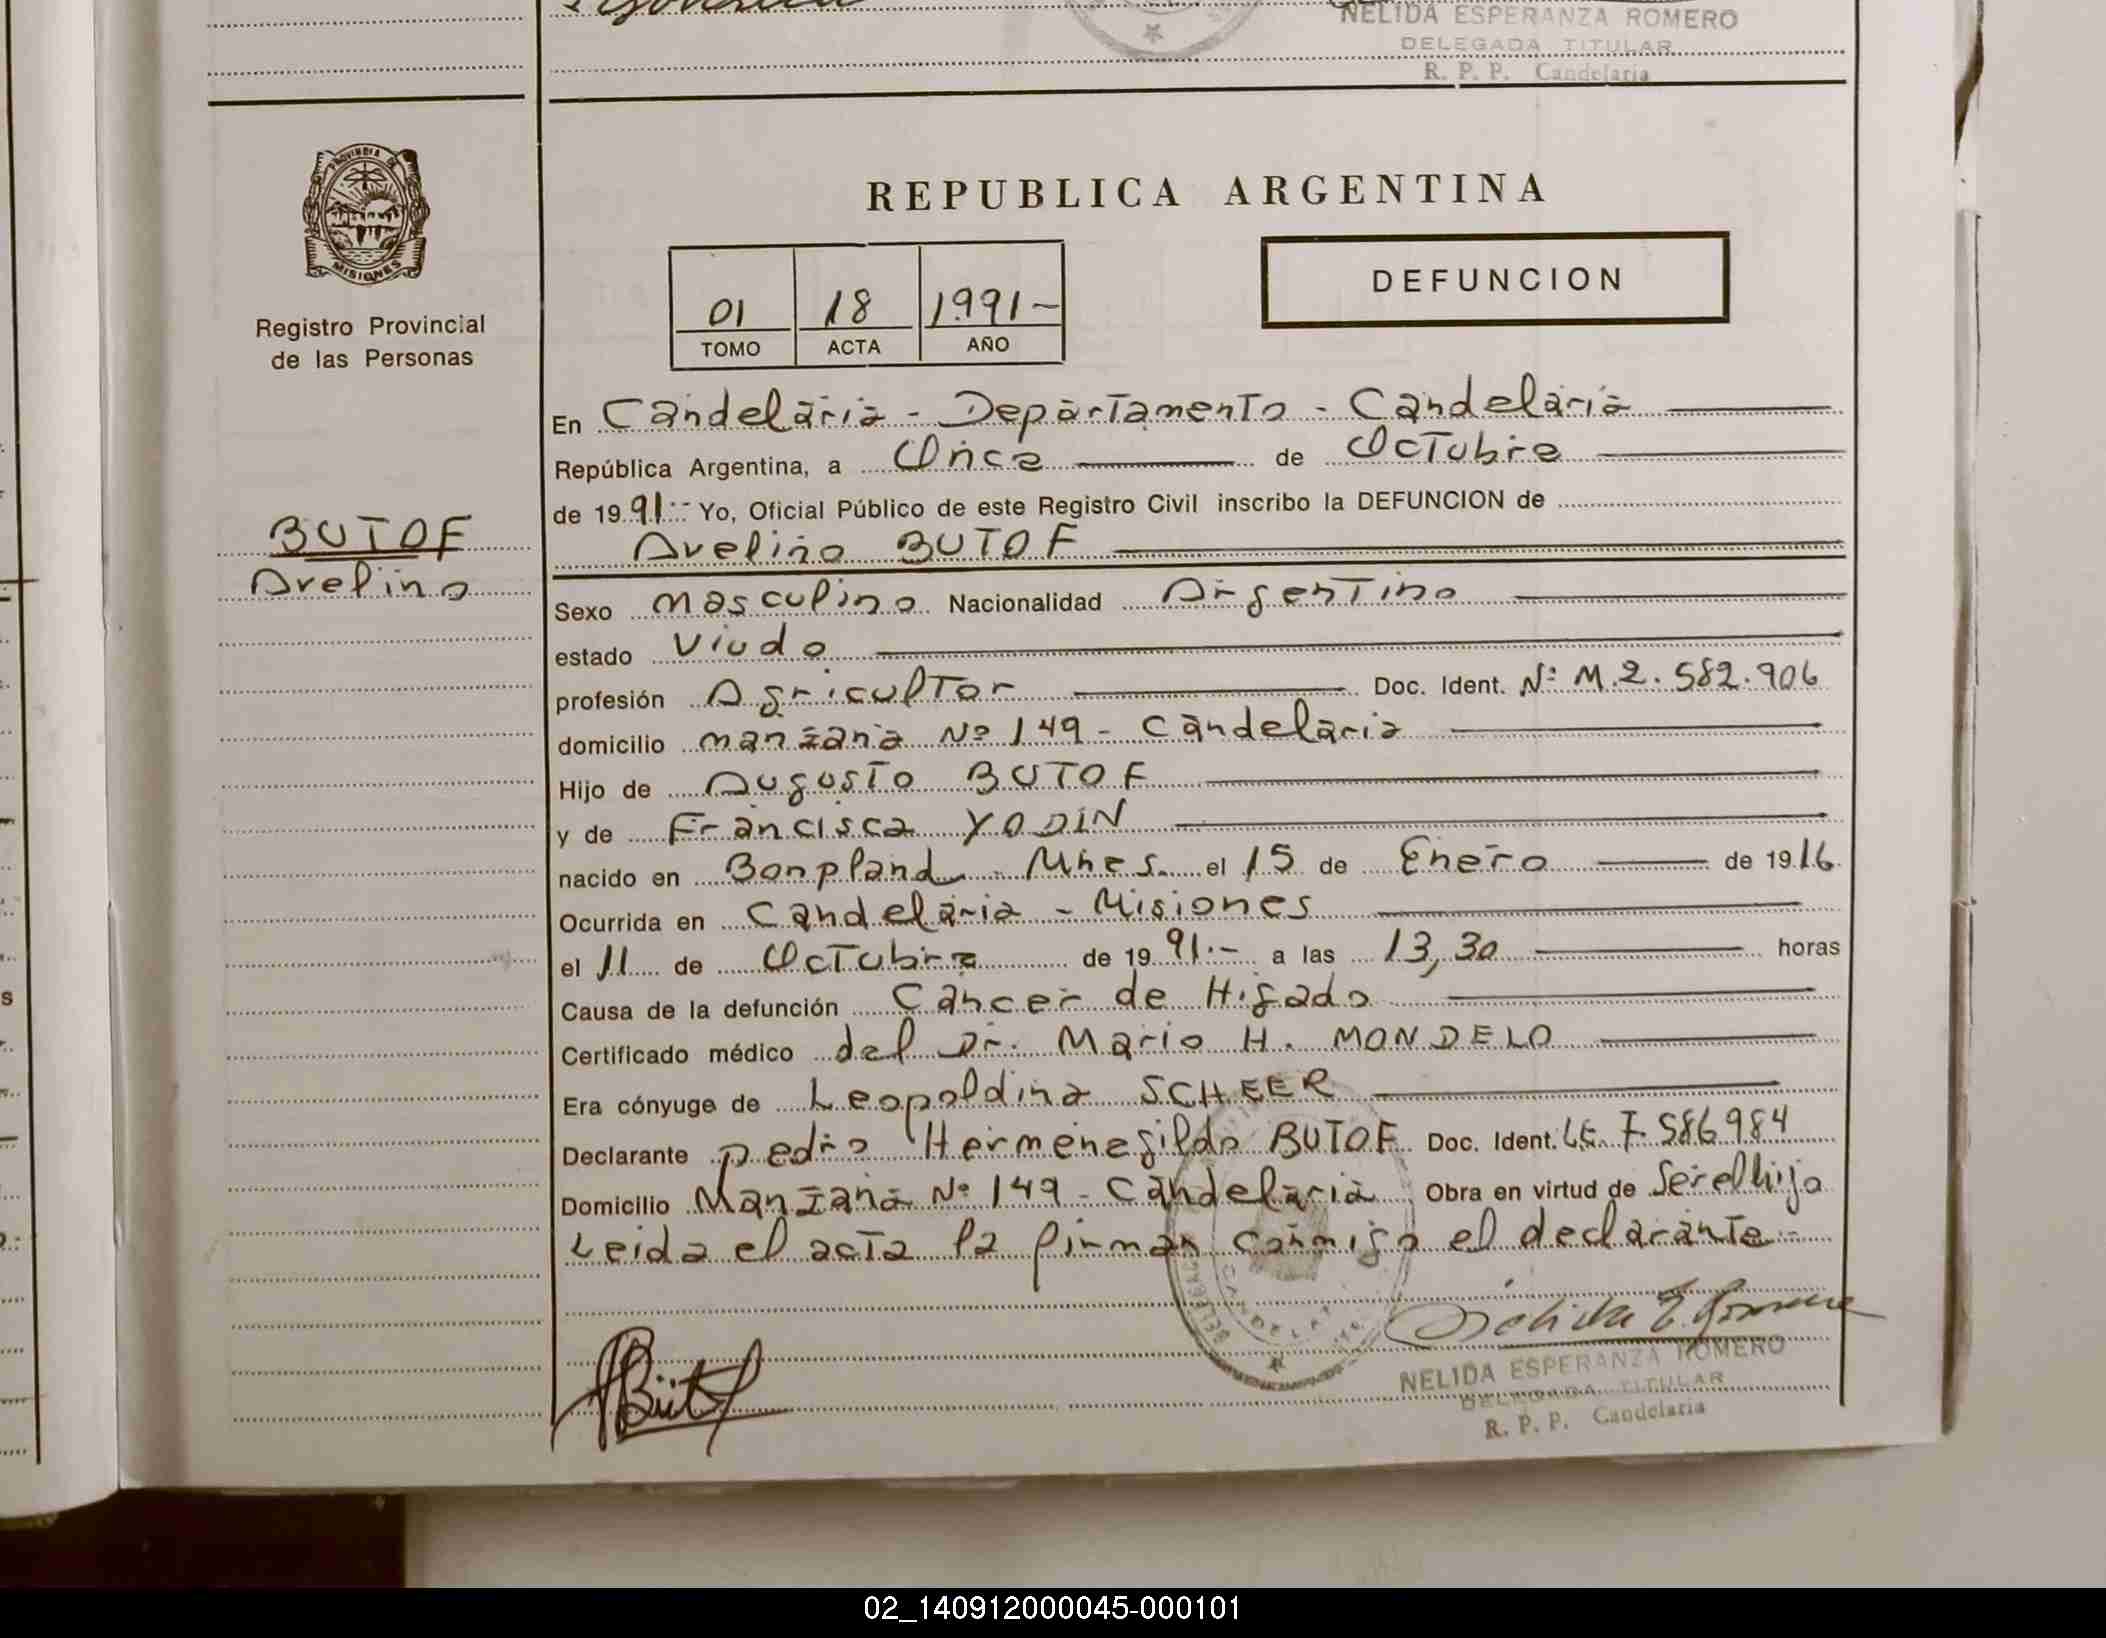 NELIDA ESPERANZA ROMERO
DELEGADA TITULAR
R. P. P. Candelaria
PROVINCIA DE
MISIONES
Registro Provincial
de las Personas
BUTOF
Avelino
REPUBLICA ARGENTINA
01 18 1991-
TOMO ACTA AÑO
DEFUNCION
En Candelaria - Departamento - Candelaria
República Argentina, a Once de Octubre
de 1991.- Yo, Oficial Público de este Registro Civil inscribo la DEFUNCION de
Avelino BUTOF
Sexo masculino Nacionalidad Argentino
estado Viudo
profesión Agricultor Doc. Ident. Nº M.2.582.906
domicilio manzana Nº 149 - Candelaria
Hijo de Augusto BUTOF
y de Francisca YODIN
nacido en Bonpland - Mnes. el 15 de Enero de 1916
Ocurrida en Candelaria - Misiones
el 11 de Octubre de 1991.- a las 13,30 horas
Causa de la defunción Cáncer de Higado
Certificado médico del Dr. Mario H. MONDELO
Era cónyuge de Leopoldina SCHEER
Declarante pedro Hermenegildo BUTOF Doc. Ident. LE. 7.586984
Domicilio Manzana Nº 149 - Candelaria Obra en virtud de Ser el hijo
Leida el acta la firman conmigo el declarante.-
Nelida E. Romero
NELIDA ESPERANZA ROMERO
DELEGADA TITULAR
R. P. P. Candelaria
02_140912000045-000101